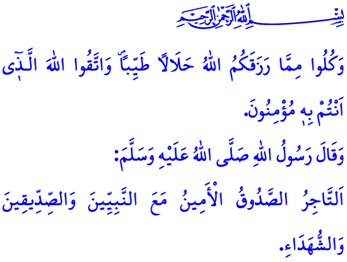 بِسْمِ اللهِ الرَّحْمٰنِ الرَّحِيمِ
وَكُلُوا مِمَّا رَزَقَكُمُ اللهُ حَلَالًا طَيِّبًاۖ وَاتَّقُوا اللهَ الَّذ۪ٓي
اَنْتُمْ بِه۪ مُؤْمِنُونَ.
وَقَالَ رَسُولُ اللهِ صَلَّى اللهُ عَلَيْهِ وَسَلَّمَ:
اَلتَّاجِرُ الصَّدُوقُ الْأَمِينُ مَعَ النَّبِيِّينَ وَالصِّدِّيقِينَ
وَالشُّهَدَاءِ.